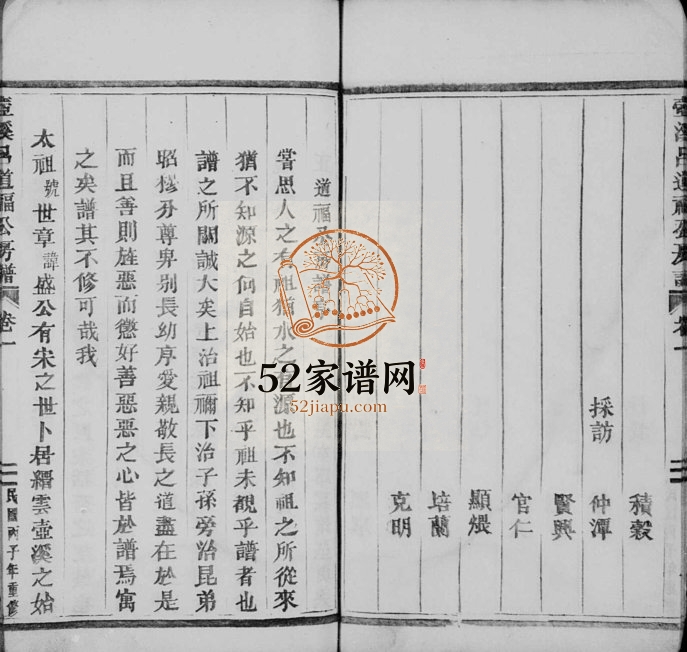 壺溪呂道福公房譜 卷一
積穀
採訪 仲潭
賢興
官仁
顯煨
培蘭
克明
道福公房譜
嘗思人之有祖猶水之有源也不知祖之所從來
猶不知源之何自始也不知乎祖未覩乎譜者也
譜之所關誠大矣上治祖禰下治子孫旁治昆弟
昭穆分尊卑別長幼序愛親敬長之道盡在於是
而且善則旌惡而懲好善惡惡之心皆於譜焉寓
之矣譜其不修可哉我
太祖號世章諱盛公有宋之世卜居縉雲壺溪之始
壺溪呂道福公房譜 卷一 二 民國丙子年重修
52家谱网
52jiapu.com